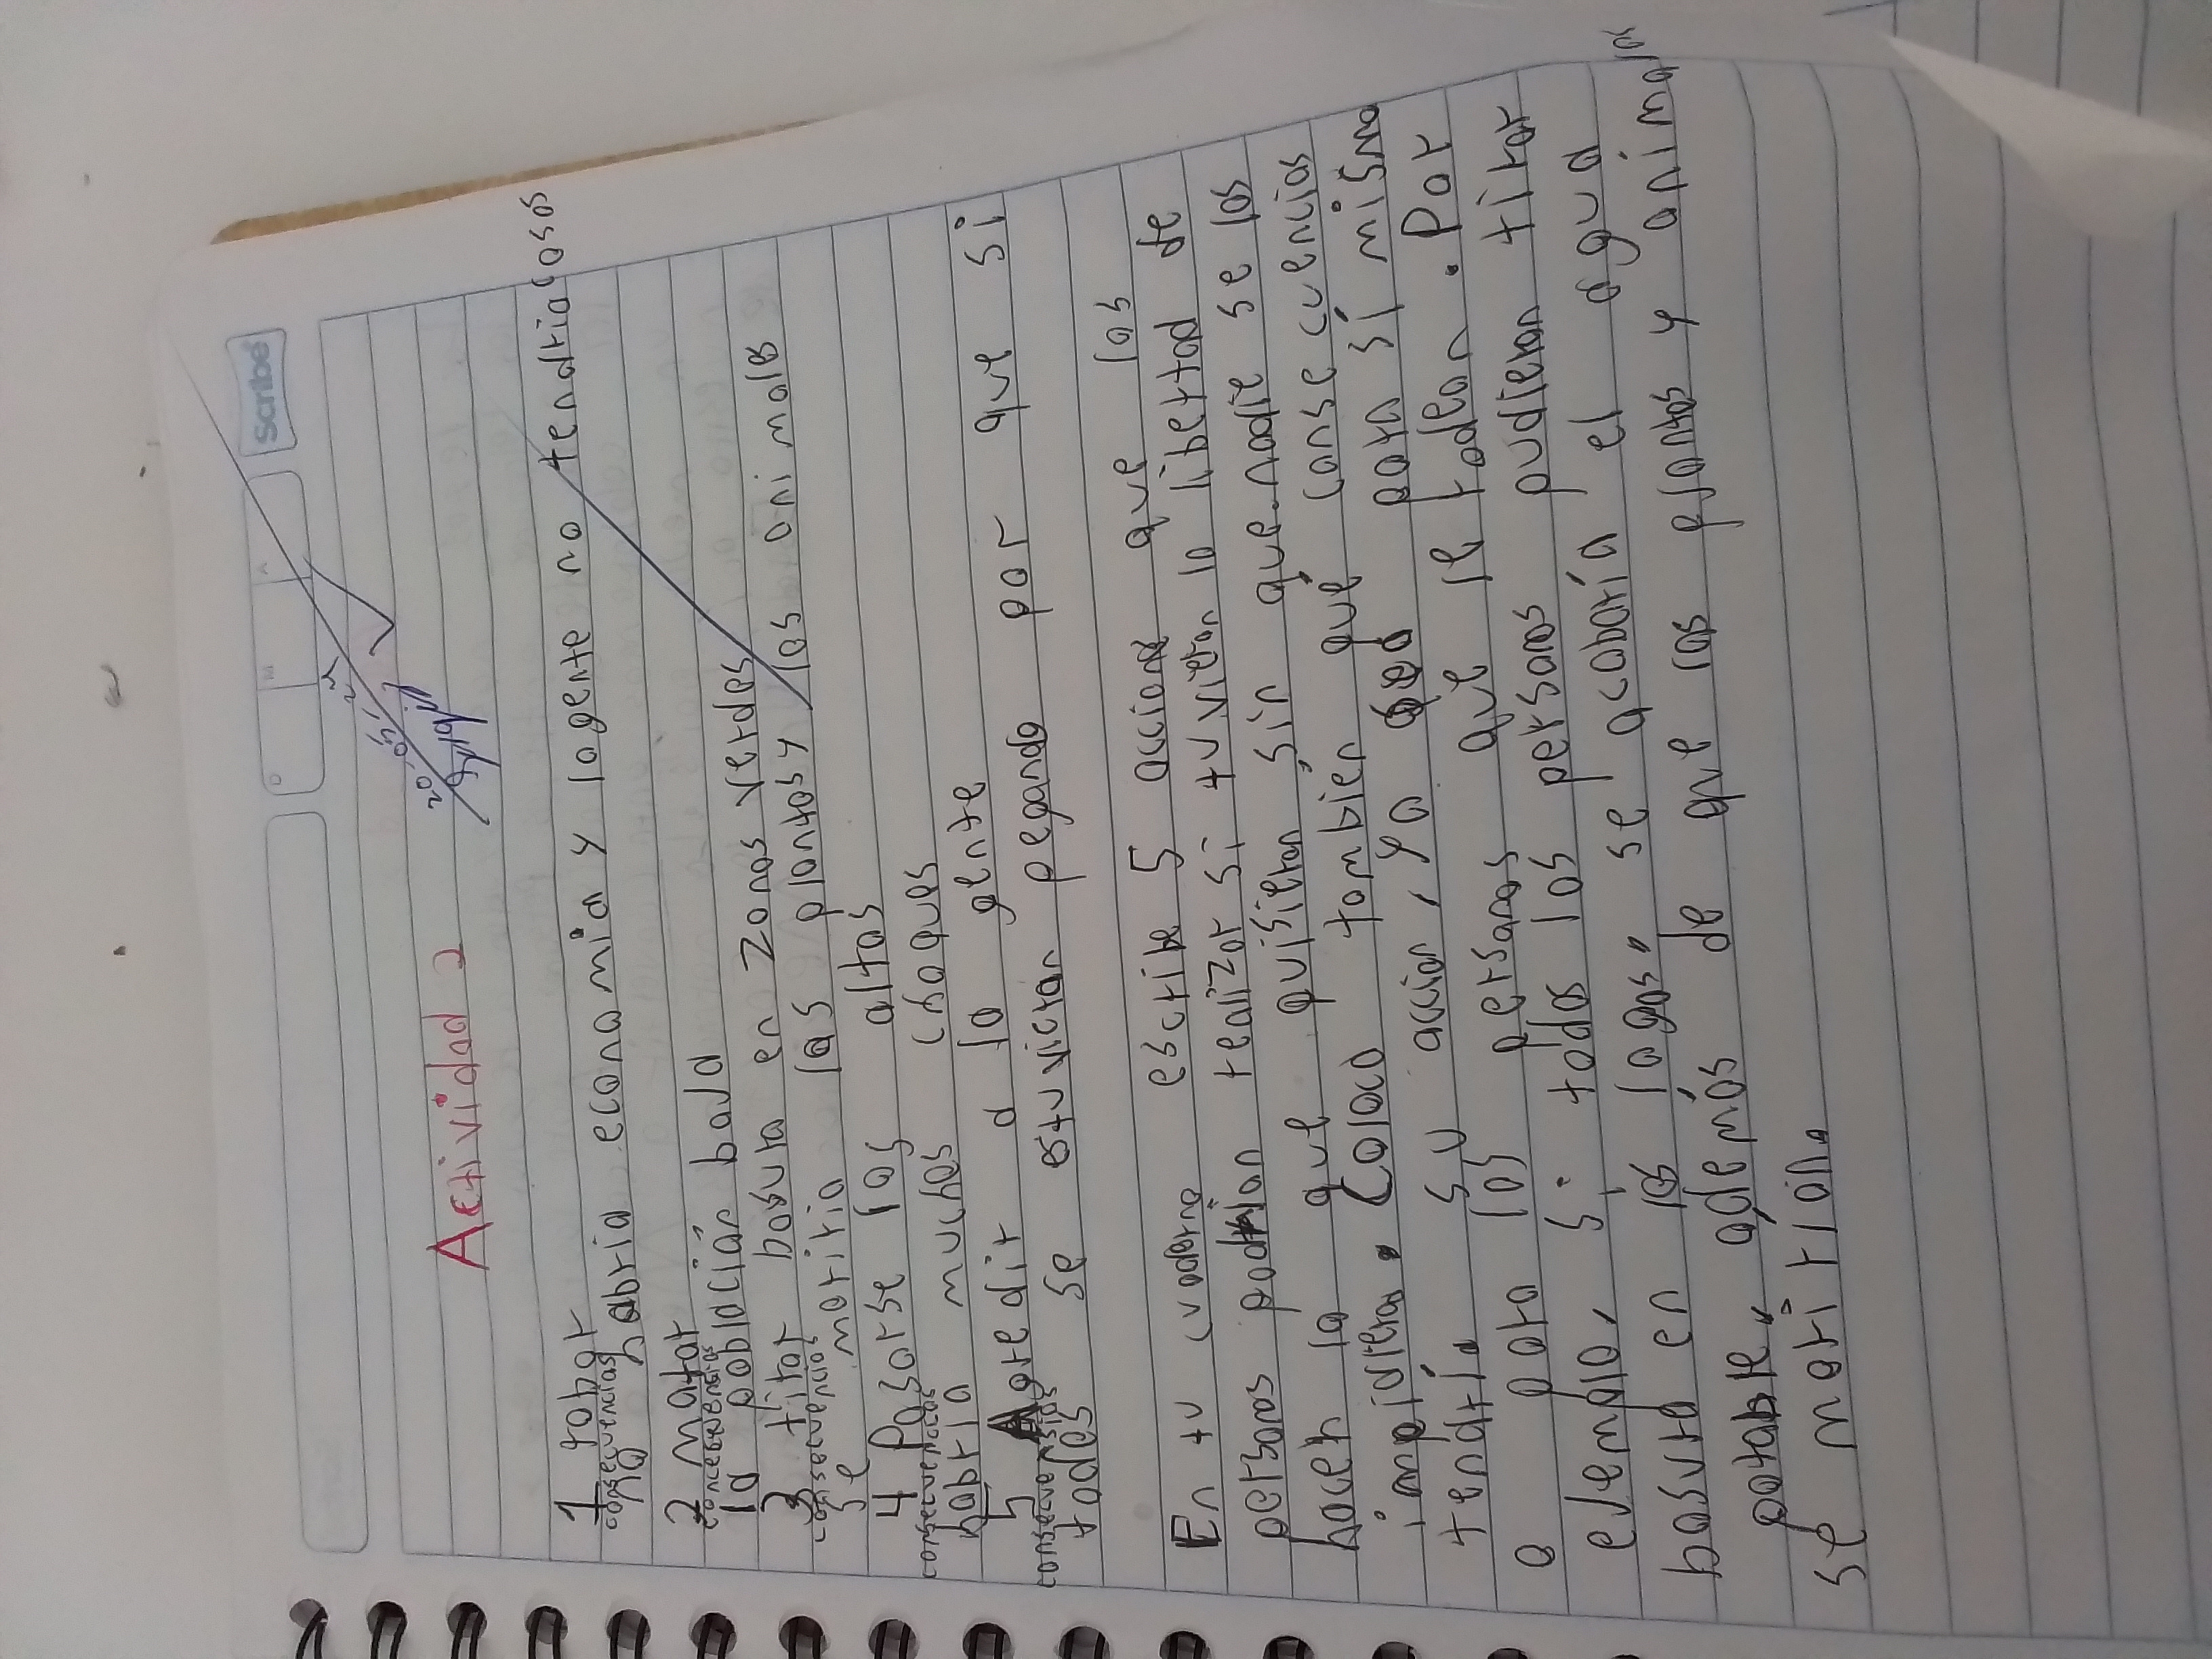 Scribe
D M A
20-01-23
Actividad 2
1 robar
consecuencias
no habria economia y la gente no tendria cosas
2 matar
consecuencias
la población baja
3 tirar basura en zonas verdes
consecuencias
se moriria las plantas y los animales
4 Pasarse los altos
consecuencias
habria muchos choques
5 Agredir a la gente
consecuencias
todos se estuvieran pegando por que si
En tu cuaderno escribe 5 acciones que las
personas podrían realizar si tuvieran la libertad de
hacer lo que quisieran, sin que nadie se los
impidiera. Coloca también qué consecuencias
tendría su acción, ya sea para sí mismo
o para las personas que le rodean. Por
ejemplo, si todas las personas pudieran tirar
basura en los lagos, se acabaría el agua
potable, además de que las plantas y animales
se morirían.